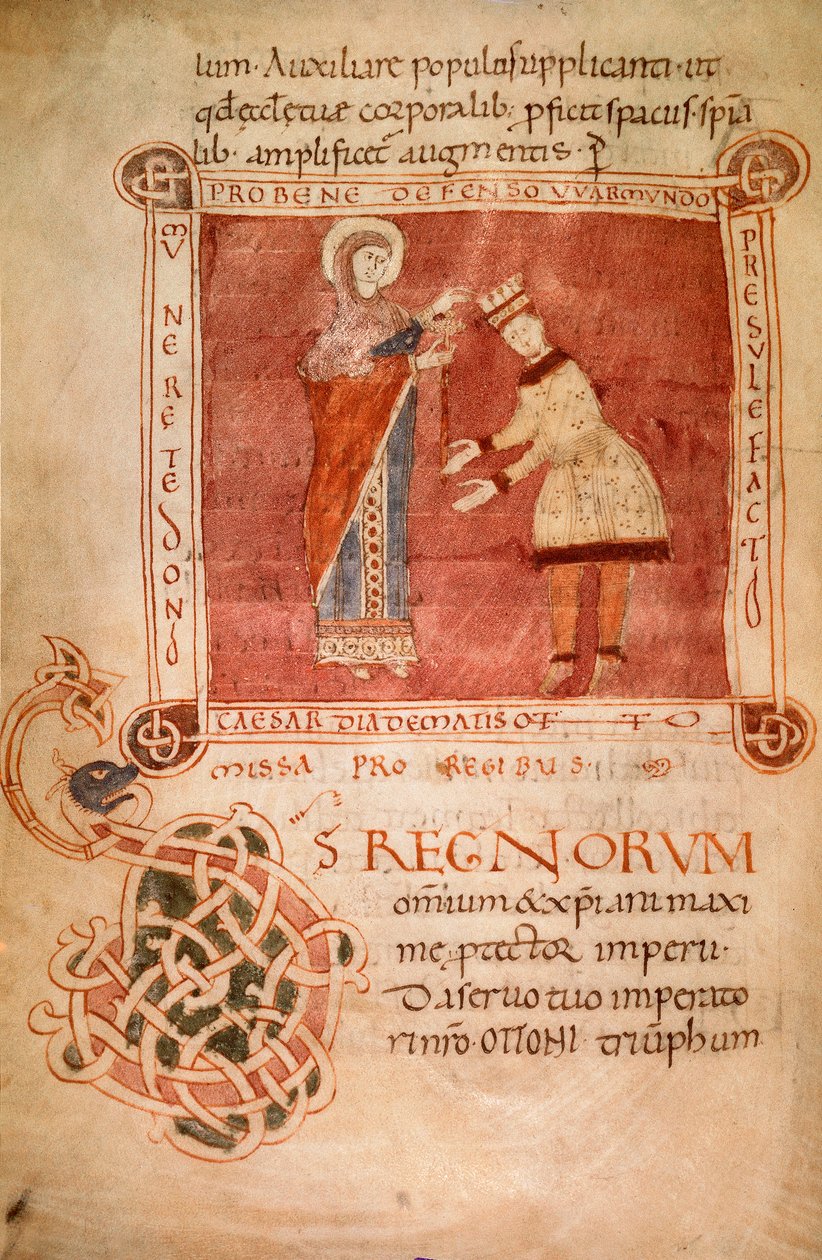 lum· Auxiliare populo supplicanti· ut
qđ ęccłę tuæ corporalib; ꝓficit spacus· spīa
lib· amplificet augmentis· P̄
PRO BENE DEFENSO VVARMVNDO
PRESVLE FACTO
MVNERE TE DONO
CAESAR DIADEMATIS OTTO
MISSA PRO REGIBUS·
S̄ REGNORVM
om̄ium & xp̄iani maxi
me ꝓtector imperii·
Da seruo tuo imperato
ri nr̄o· OTTONI· triūphum